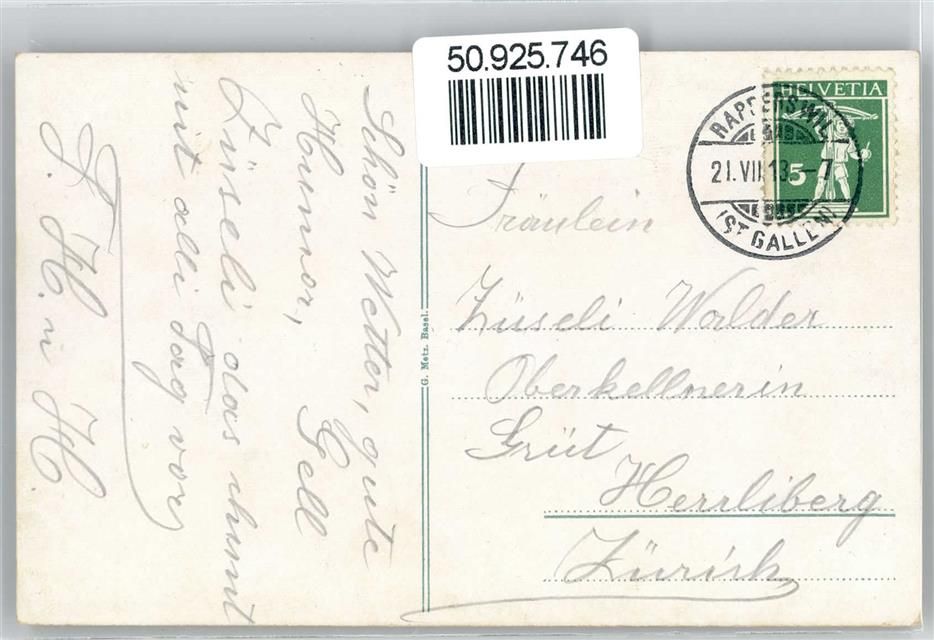 50.925.746
HELVETIA
5
RAPPERSWIL
21.VII.13.-7
(ST. GALLEN)
Schön Wetter, gute
Humor, Gell
Züseli das chunt
mit alli Tag vor,
F. H. u H.
G. Metz. Basel.
Fräulein
Züseli Walder
Oberkellnerin
Grüt
Herrliberg
Zürich